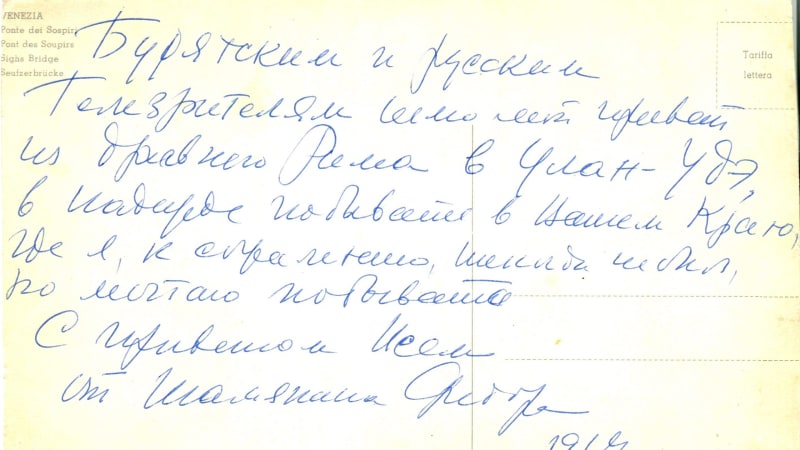 VENEZIA
Ponte dei Sospiri
Pont des Soupirs
Sighs Bridge
Seufzerbrücke
Tariffa
lettera
Бурятским и русским
Телезрителям шлю привет
из древнего Рима в Улан-Удэ,
в надежде побывать в Вашем Краю,
где я, к сожалению, никогда не был,
но мечтаю побывать
С приветом Всем
от Шаляпина Фёдора